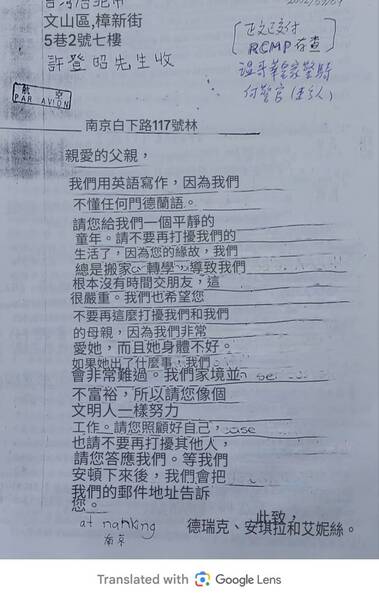 文山區,樟新街
5巷2號七樓
許登昭先生收
正文交付
RCMP存查
溫哥華皇家警騎
何警官(王人)
航 空
PAR AVION
南京白下路117號林
親愛的父親,
我們用英語寫作,因為我們
不懂任何門德蘭語。
請您給我們一個平靜的
童年。請不要再打擾我們的
生活了,因為您的緣故,我們
總是搬家 轉學 導致我們
根本沒有時間交朋友,這
很嚴重。我們也希望您
不要再這麼打擾我們和我們
的母親,因為我們非常
愛她,而且她身體不好。
如果她出了什麼事,我們
會非常難過。我們家境並
不富裕,所以請您像個
文明人一樣努力
工作。請您照顧好自己,
也請不要再打擾其他人,
請您答應我們。等我們
安頓下來後,我們會把
我們的郵件地址告訴
您。
此致,
at nanking
南京
德瑞克、安琪拉和艾妮絲。
Translated with Google Lens